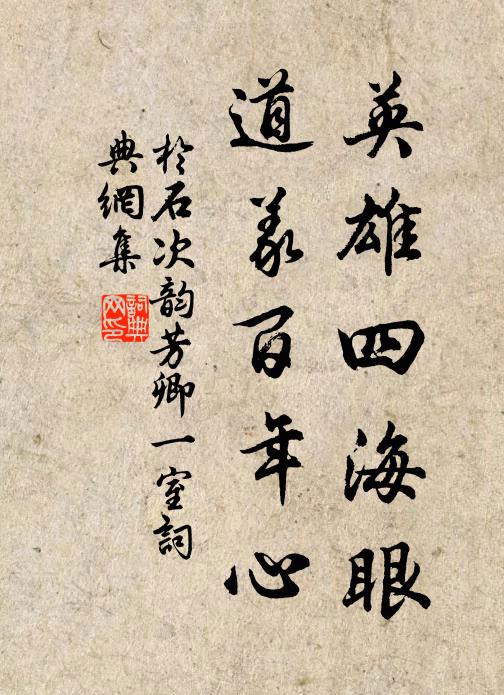 英雄四海眼
道義百年心
於石次韵芳卿一室詞
典網集
詞典网印